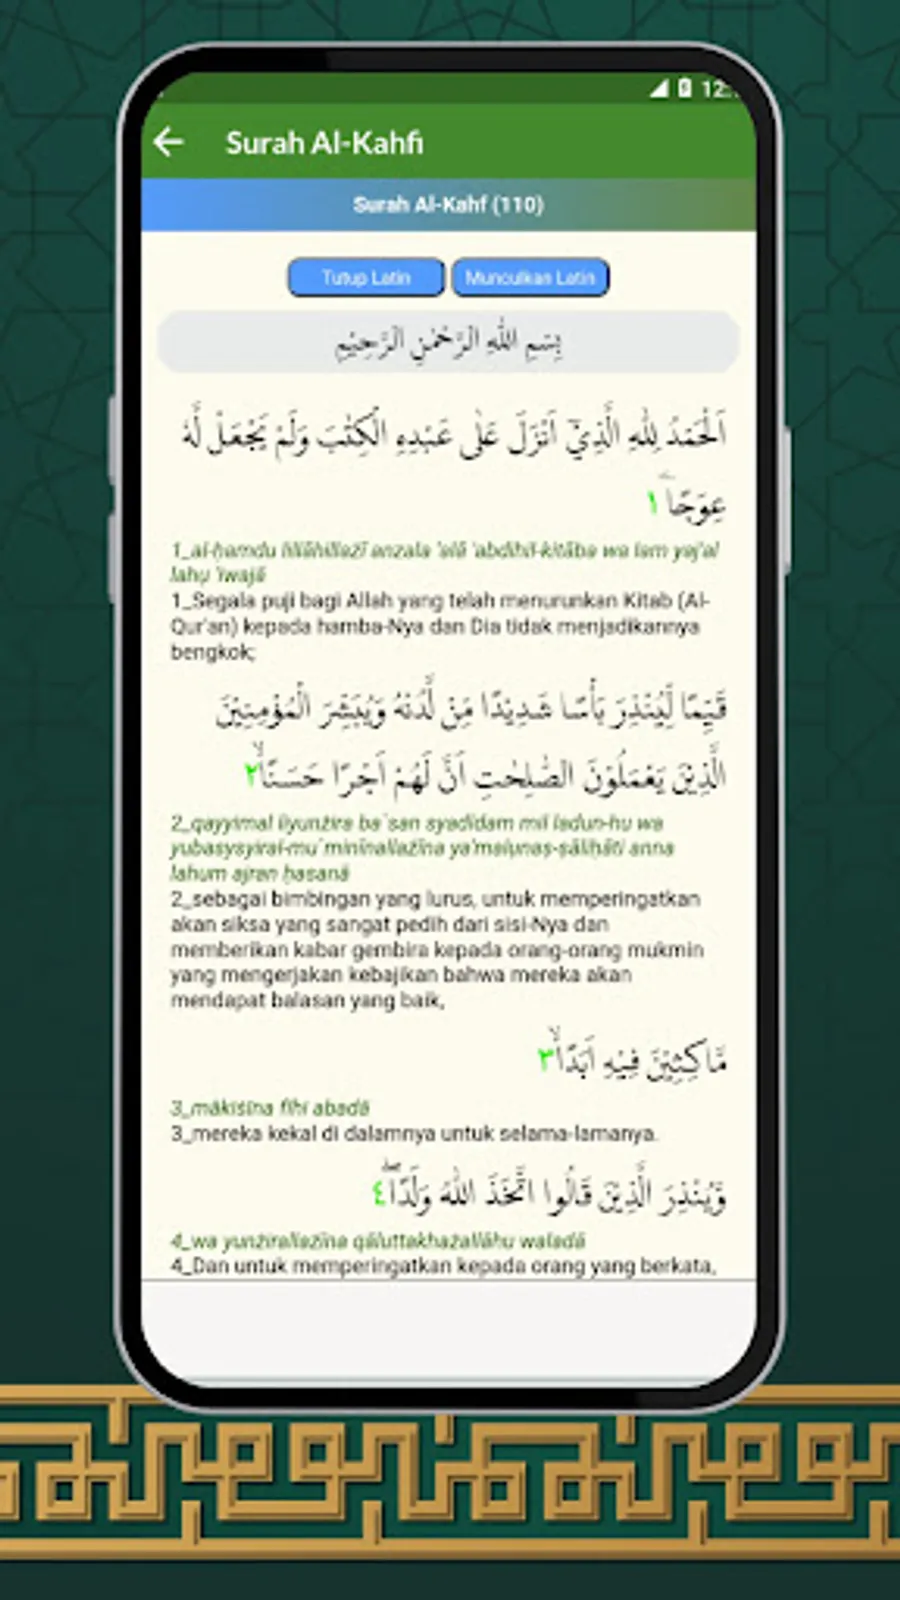 12:
Surah Al-Kahfi
Surah Al-Kahf (110)
Tutup Latin
Munculkan Latin
بِسْمِ اللّٰهِ الرَّحْمٰنِ الرَّحِيْمِ
اَلْحَمْدُ لِلّٰهِ الَّذِيْٓ اَنْزَلَ عَلٰى عَبْدِهِ الْكِتٰبَ وَلَمْ يَجْعَلْ لَّهٗ
عِوَجًاۜ ١
1_al-ḥamdu lillāhillażī anzala 'alā 'abdihil-kitāba wa lam yaj'al
lahụ 'iwajā
1_Segala puji bagi Allah yang telah menurunkan Kitab (Al-
Qur'an) kepada hamba-Nya dan Dia tidak menjadikannya
bengkok;
قَيِّمًا لِّيُنْذِرَ بَأْسًا شَدِيْدًا مِّنْ لَّدُنْهُ وَيُبَشِّرَ الْمُؤْمِنِيْنَ
الَّذِيْنَ يَعْمَلُوْنَ الصّٰلِحٰتِ اَنَّ لَهُمْ اَجْرًا حَسَنًاۙ ٢
2_qayyimal liyunżira ba`san syadīdam mil ladun-hu wa
yubasysyiral-mu`minīnallażīna ya'malụnaṣ-ṣāliḥāti anna
lahum ajran ḥasanā
2_sebagai bimbingan yang lurus, untuk memperingatkan
akan siksa yang sangat pedih dari sisi-Nya dan
memberikan kabar gembira kepada orang-orang mukmin
yang mengerjakan kebajikan bahwa mereka akan
mendapat balasan yang baik,
مَّاكِثِيْنَ فِيْهِ اَبَدًاۙ ٣
3_mākiṡīna fīhi abadā
3_mereka kekal di dalamnya untuk selama-lamanya.
وَّيُنْذِرَ الَّذِيْنَ قَالُوا اتَّخَذَ اللّٰهُ وَلَدًاۖ ٤
4_wa yunżirallażīna qāluttakhażallāhu waladā
4_Dan untuk memperingatkan kepada orang yang berkata,